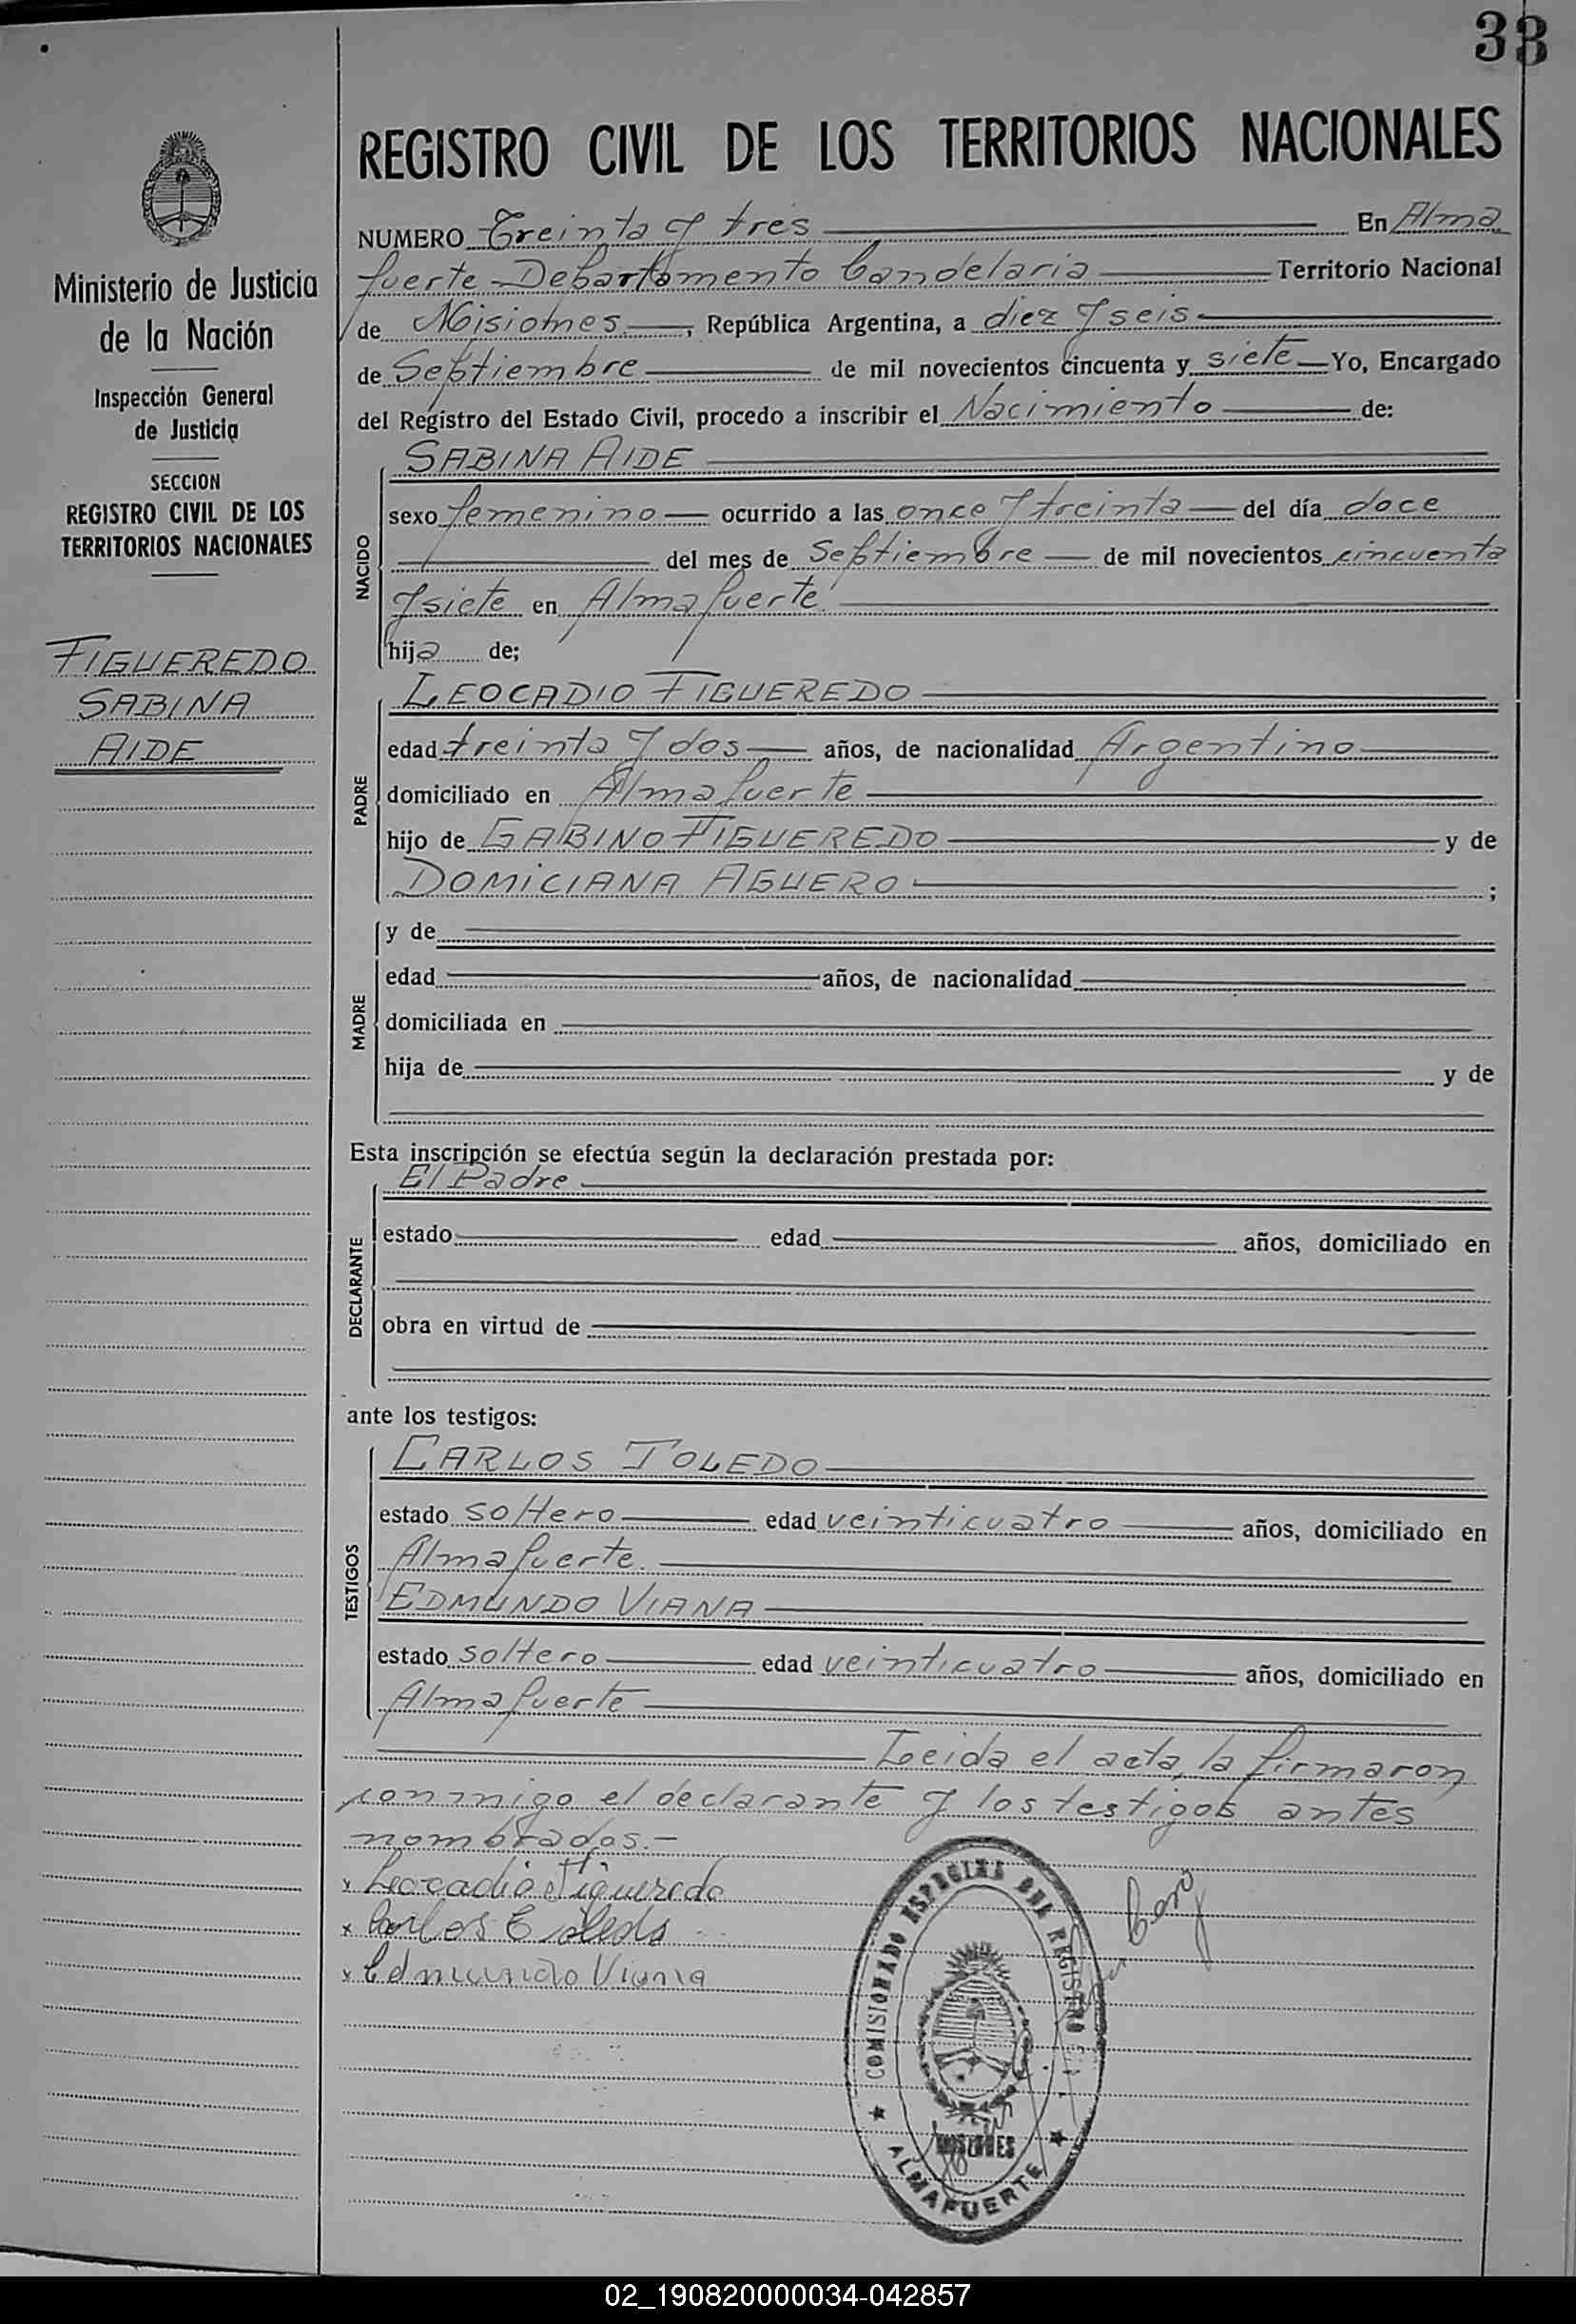 33
Ministerio de Justicia
de la Nación
Inspección General
de Justicia
SECCION
REGISTRO CIVIL DE LOS
TERRITORIOS NACIONALES
FIGUEREDO
SABINA
AIDE
REGISTRO CIVIL DE LOS TERRITORIOS NACIONALES
NUMERO Treinta y tres En Alma
fuerte Departamento Candelaria Territorio Nacional
de Misiones, República Argentina, a diez y seis
de Septiembre de mil novecientos cincuenta y siete Yo, Encargado
del Registro del Estado Civil, procedo a inscribir el Nacimiento de:
NACIDO
SABINA AIDE
sexo femenino ocurrido a las once y treinta del día doce
del mes de Septiembre de mil novecientos cincuenta
y siete en Almafuerte
hija de;
PADRE
LEOCADIO FIGUEREDO
edad treinta y dos años, de nacionalidad Argentino
domiciliado en Almafuerte
hijo de GABINO FIGUEREDO y de
DOMICIANA AGUERO ;
MADRE
y de
edad años, de nacionalidad
domiciliada en
hija de y de
Esta inscripción se efectúa según la declaración prestada por:
DECLARANTE
El Padre
estado edad años, domiciliado en
obra en virtud de
ante los testigos:
TESTIGOS
CARLOS TOLEDO
estado soltero edad veinticuatro años, domiciliado en
Almafuerte.
EDMUNDO VIANA
estado soltero edad veinticuatro años, domiciliado en
Almafuerte
Leida el acta, la firmaron
conmigo el declarante y los testigos antes
nombrados.-
x Leocadio Figueredo
x Carlos Toledo
x Edmundo Viana
COMISIONADO ESPECIAL DEL REGISTRO
MISIONES
ALMAFUERTE
02_190820000034-042857